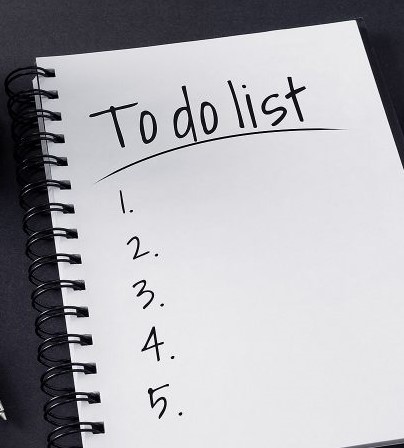 To do list
1.
2.
3.
4.
5.